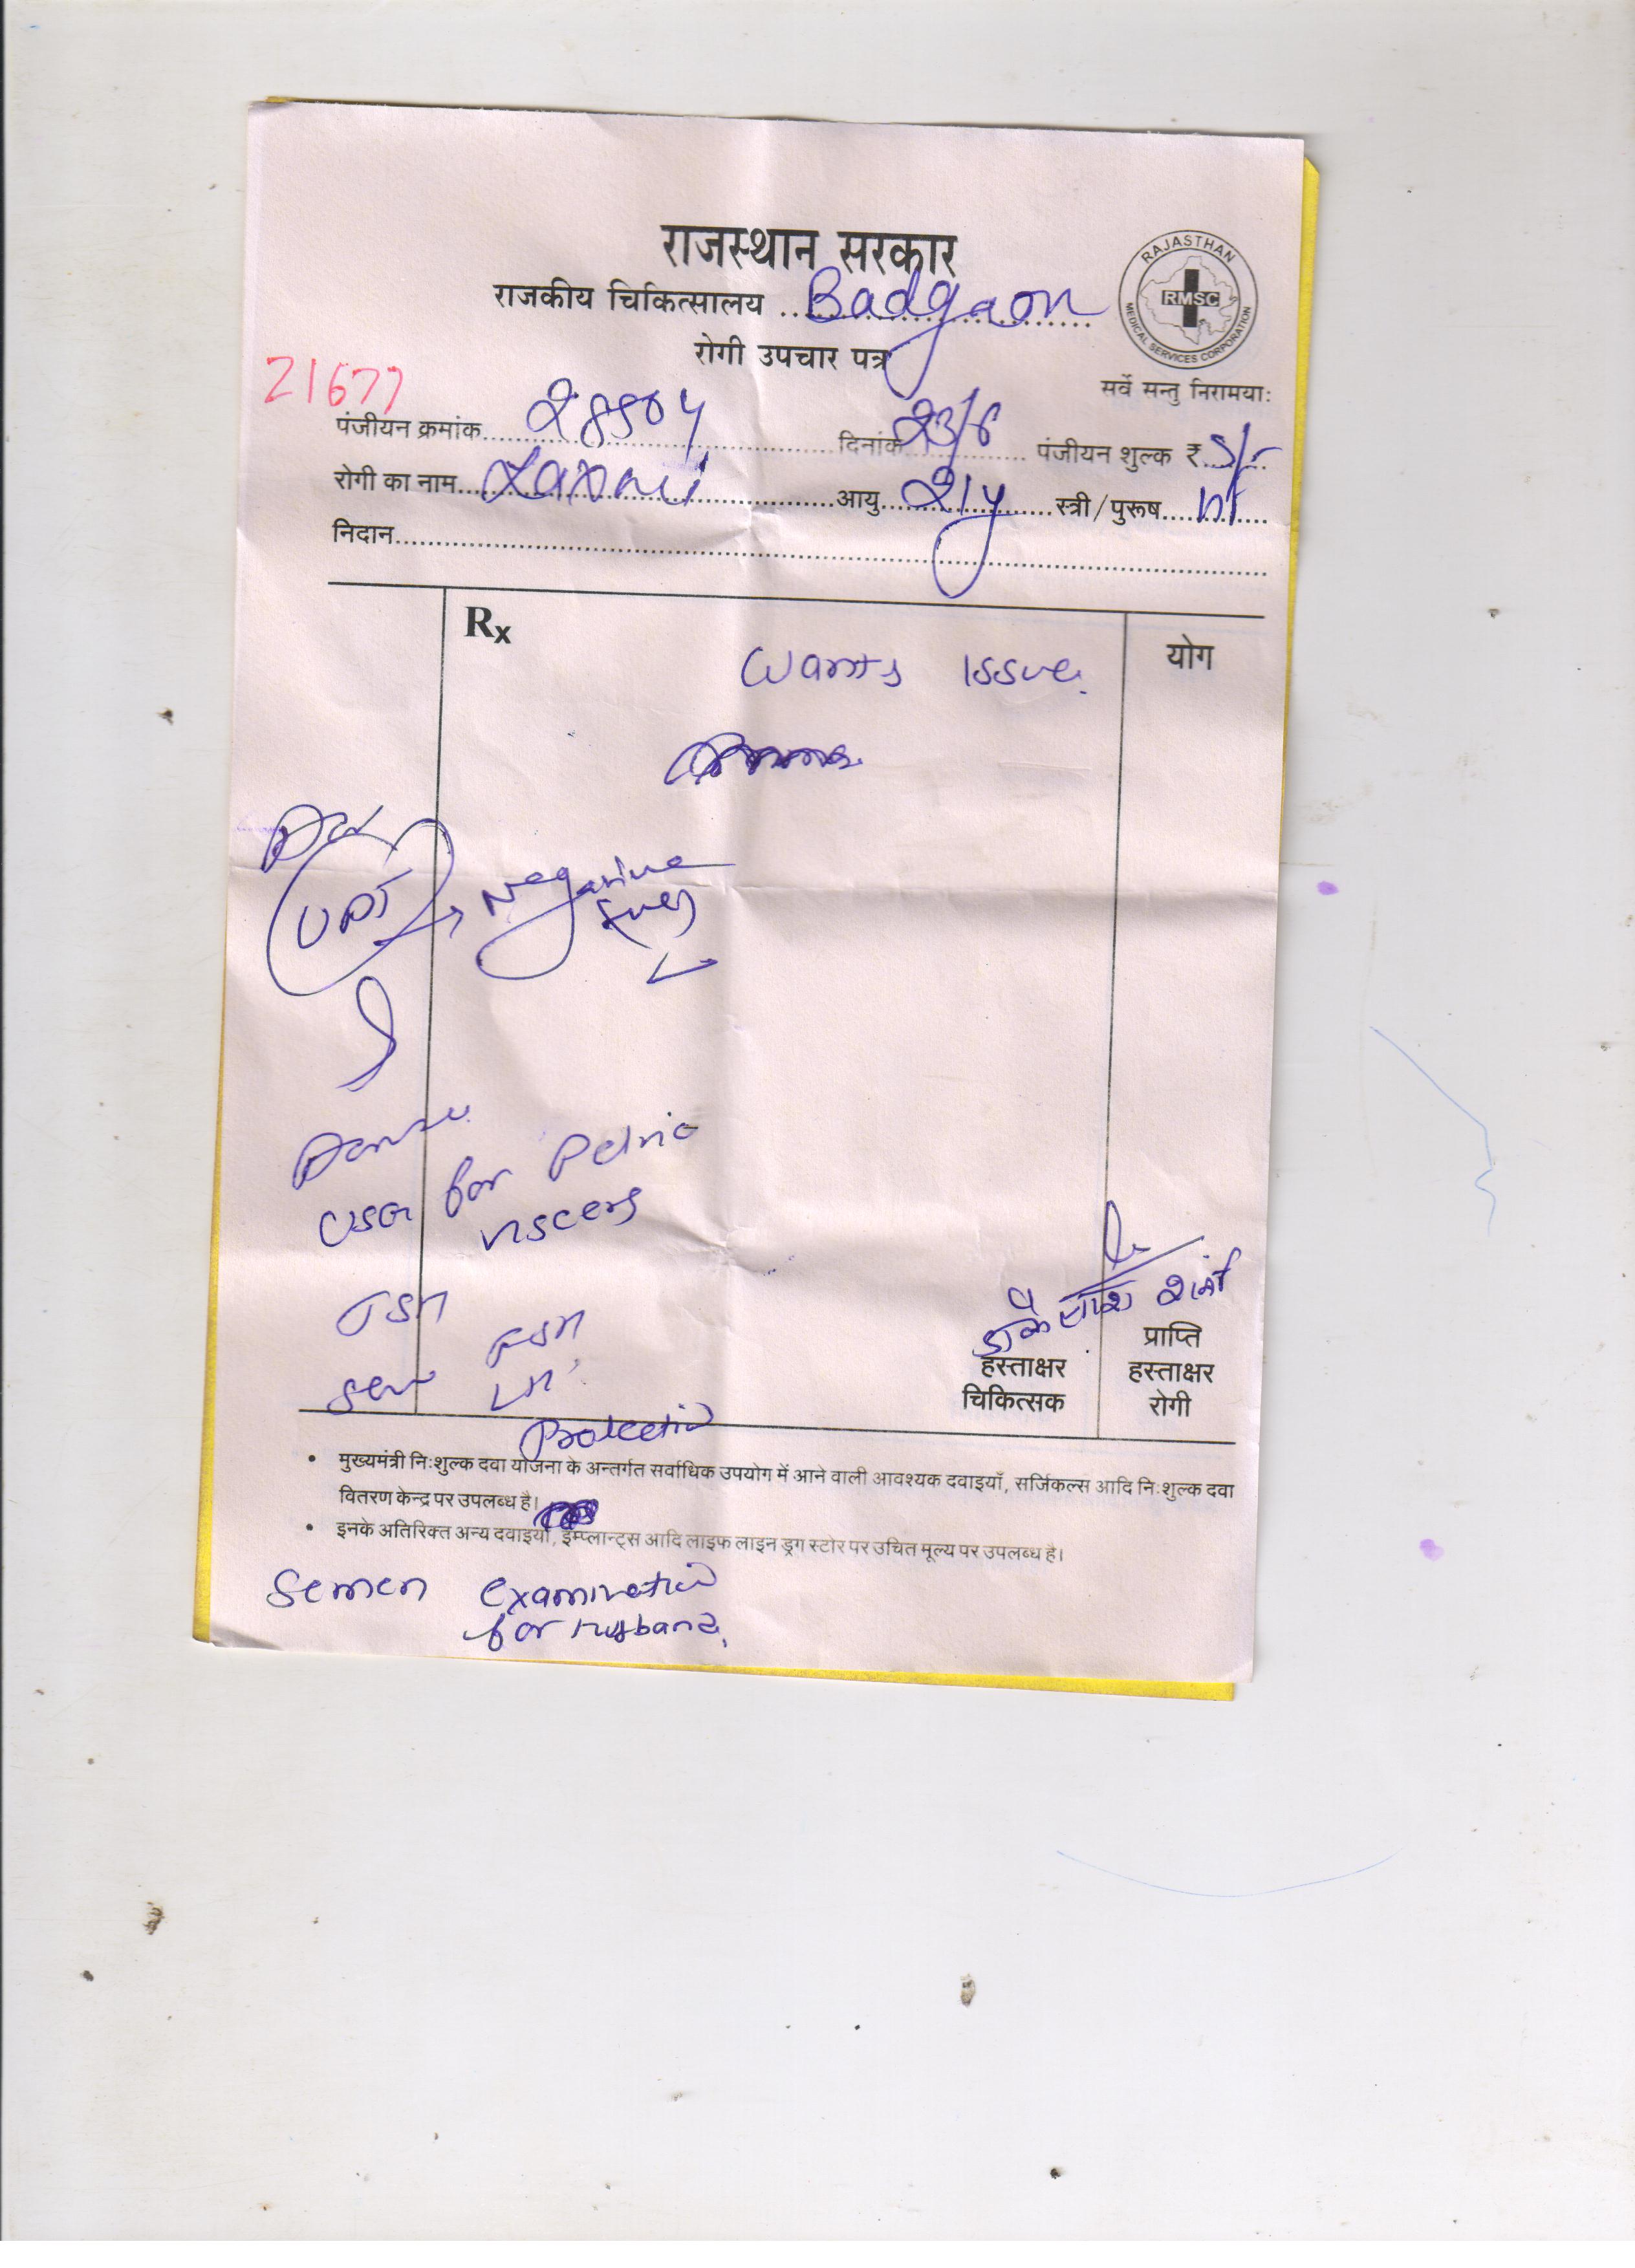 राजस्थान सरकार
राजकीय चिकित्सालय Badgaon
रोगी उपचार पत्र
RAJASTHAN
RMSC
MEDICAL SERVICES CORPORATION
सर्वे सन्तु निरामयाः
21677
पंजीयन क्रमांक 28504 दिनांक 23/6 पंजीयन शुल्क ₹ 5/-
रोगी का नाम Laxmi आयु 21y स्त्री/पुरूष
निदान
Rx
योग
Wants Issue.
UPT → Negative
USG for Pelvic
viscera
TSH
FSH
LH
Prolactin
कैलाश शर्मा
हस्ताक्षर
चिकित्सक
प्राप्ति
हस्ताक्षर
रोगी
• मुख्यमंत्री निःशुल्क दवा योजना के अन्तर्गत सर्वाधिक उपयोग में आने वाली आवश्यक दवाइयाँ, सर्जिकल्स आदि निःशुल्क दवा
वितरण केन्द्र पर उपलब्ध है।
• इनके अतिरिक्त अन्य दवाइयाँ, इम्प्लान्ट्स आदि लाइफ लाइन ड्रग स्टोर पर उचित मूल्य पर उपलब्ध है।
Semen examination
for Husband.